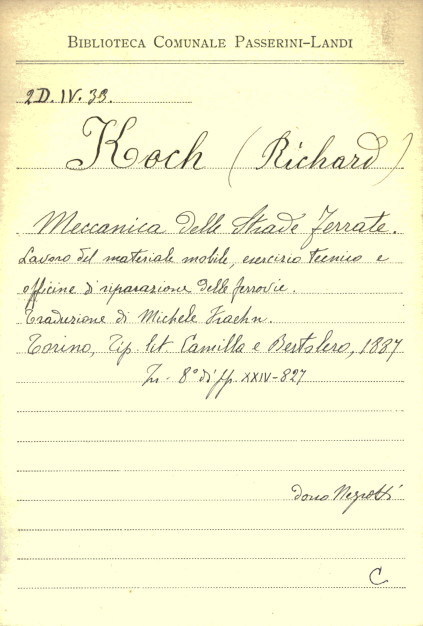 BIBLIOTECA COMUNALE PASSERINI-LANDI
2D.IV.33.
Koch (Richard)
Meccanica delle Strade Ferrate.
Lavoro del materiale mobile, esercizio tecnico e
officine di riparazione delle ferrovie.
Traduzione di Michele
Torino, Tip. lit. Camilla e Bertolero, 1887
In-8° di pp. XXIV-827
dono Negrotti
C